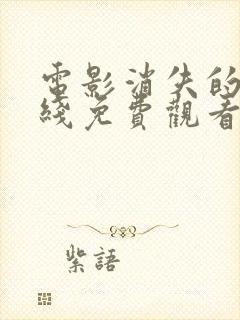 電影消失的
綫免費觀看
紫語